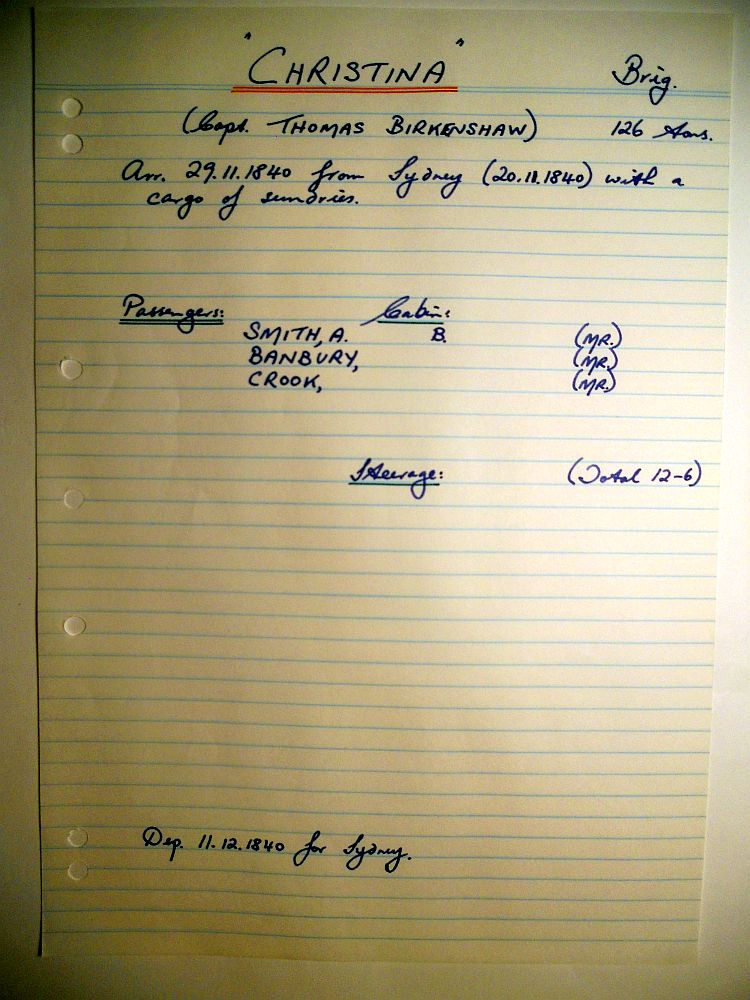 "CHRISTINA" Brig.
(Capt. THOMAS BIRKENSHAW) 126 tons.
Arr. 29.11.1840 from Sydney (20.11.1840) with a
cargo of sundries.
Passengers: Cabin:
SMITH, A. B. (MR.)
BANBURY, (MR.)
CROOK, (MR.)
Steerage: (Total 12-6)
Dep. 11.12.1840 for Sydney.